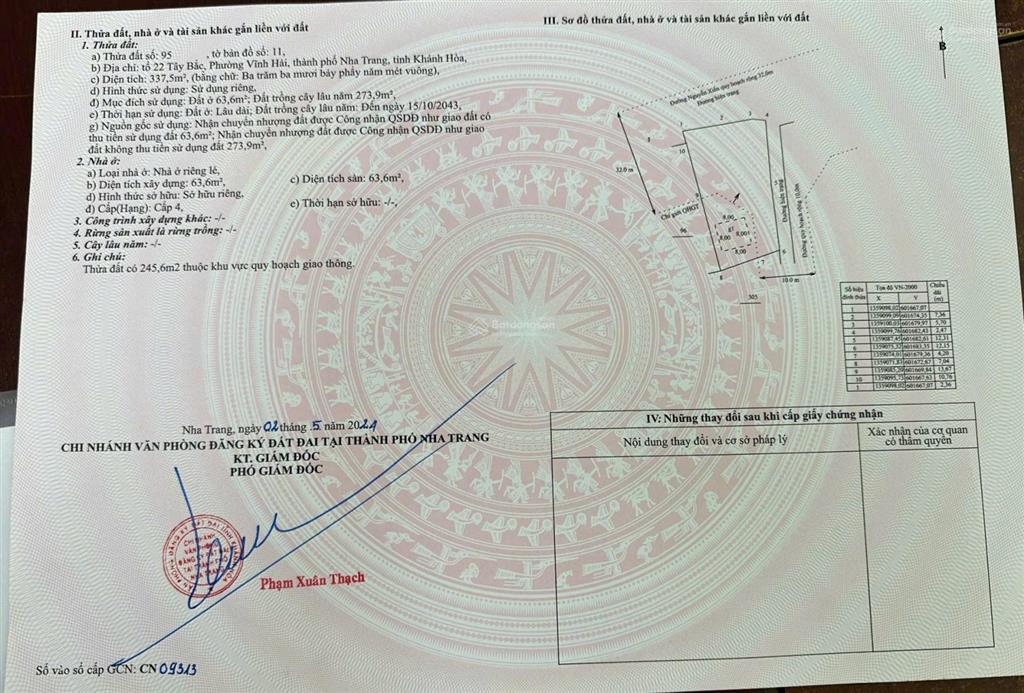 II. Thửa đất, nhà ở và tài sản khác gắn liền với đất
1. Thửa đất:
a) Thửa đất số: 95 , tờ bản đồ số: 11,
b) Địa chỉ: tổ 22 Tây Bắc, Phường Vĩnh Hải, thành phố Nha Trang, tỉnh Khánh Hòa,
c) Diện tích: 337,5m², (bằng chữ: Ba trăm ba mươi bảy phẩy năm mét vuông),
d) Hình thức sử dụng: Sử dụng riêng,
đ) Mục đích sử dụng: Đất ở 63,6m²; Đất trồng cây lâu năm 273,9m²,
e) Thời hạn sử dụng: Đất ở: Lâu dài; Đất trồng cây lâu năm: Đến ngày 15/10/2043,
g) Nguồn gốc sử dụng: Nhận chuyển nhượng đất được Công nhận QSDĐ như giao đất có
thu tiền sử dụng đất 63,6m²; Nhận chuyển nhượng đất được Công nhận QSDĐ như giao
đất không thu tiền sử dụng đất 273,9m²,
2. Nhà ở:
a) Loại nhà ở: Nhà ở riêng lẻ,
b) Diện tích xây dựng: 63,6m², c) Diện tích sàn: 63,6m²,
d) Hình thức sở hữu: Sở hữu riêng,
đ) Cấp(Hạng): Cấp 4, e) Thời hạn sở hữu: -/-,
3. Công trình xây dựng khác: -/-
4. Rừng sản xuất là rừng trồng: -/-
5. Cây lâu năm: -/-
6. Ghi chú:
Thửa đất có 245,6m2 thuộc khu vực quy hoạch giao thông.
Nha Trang, ngày 02 tháng .5 năm 2024
CHI NHÁNH VĂN PHÒNG ĐĂNG KÝ ĐẤT ĐAI TẠI THÀNH PHỐ NHA TRANG
KT. GIÁM ĐỐC
PHÓ GIÁM ĐỐC
CHI NHÁNH
VĂN PHÒNG
ĐĂNG KÝ ĐẤT ĐAI
TẠI THÀNH PHỐ
NHA TRANG
Phạm Xuân Thạch
Số vào sổ cấp GCN: CN 09313
III. Sơ đồ thửa đất, nhà ở và tài sản khác gắn liền với đất
B
Đường Nguyễn Xiển quy hoạch rộng 32.0m
Đường hiện trạng
1
2
3
4
10
32.0 m
9
5
Chỉ giới QHGT
96
Đường hiện trạng
Đường quy hoạch rộng 10.0m
8,00
8,00
8,00
8
7
6
10.0 m
305
Số hiệu đỉnh thửa Tọa độ VN-2000 Chiều dài (m)
X Y
1 1359098,02 601667,07
2 1359099,09 601674,35 7,36
3 1359100,03 601679,97 5,70
4 1359099,76 601682,43 2,47
5 1359087,45 601682,61 12,31
6 1359075,32 601683,35 12,15
7 1359074,01 601679,36 4,20
8 1359071,83 601672,67 7,04
9 1359085,20 601669,84 13,67
10 1359095,73 601667,63 10,76
1 1359098,02 601667,07 2,36
Batdongsan
IV: Những thay đổi sau khi cấp giấy chứng nhận
Nội dung thay đổi và cơ sở pháp lý
Xác nhận của cơ quan
có thẩm quyền